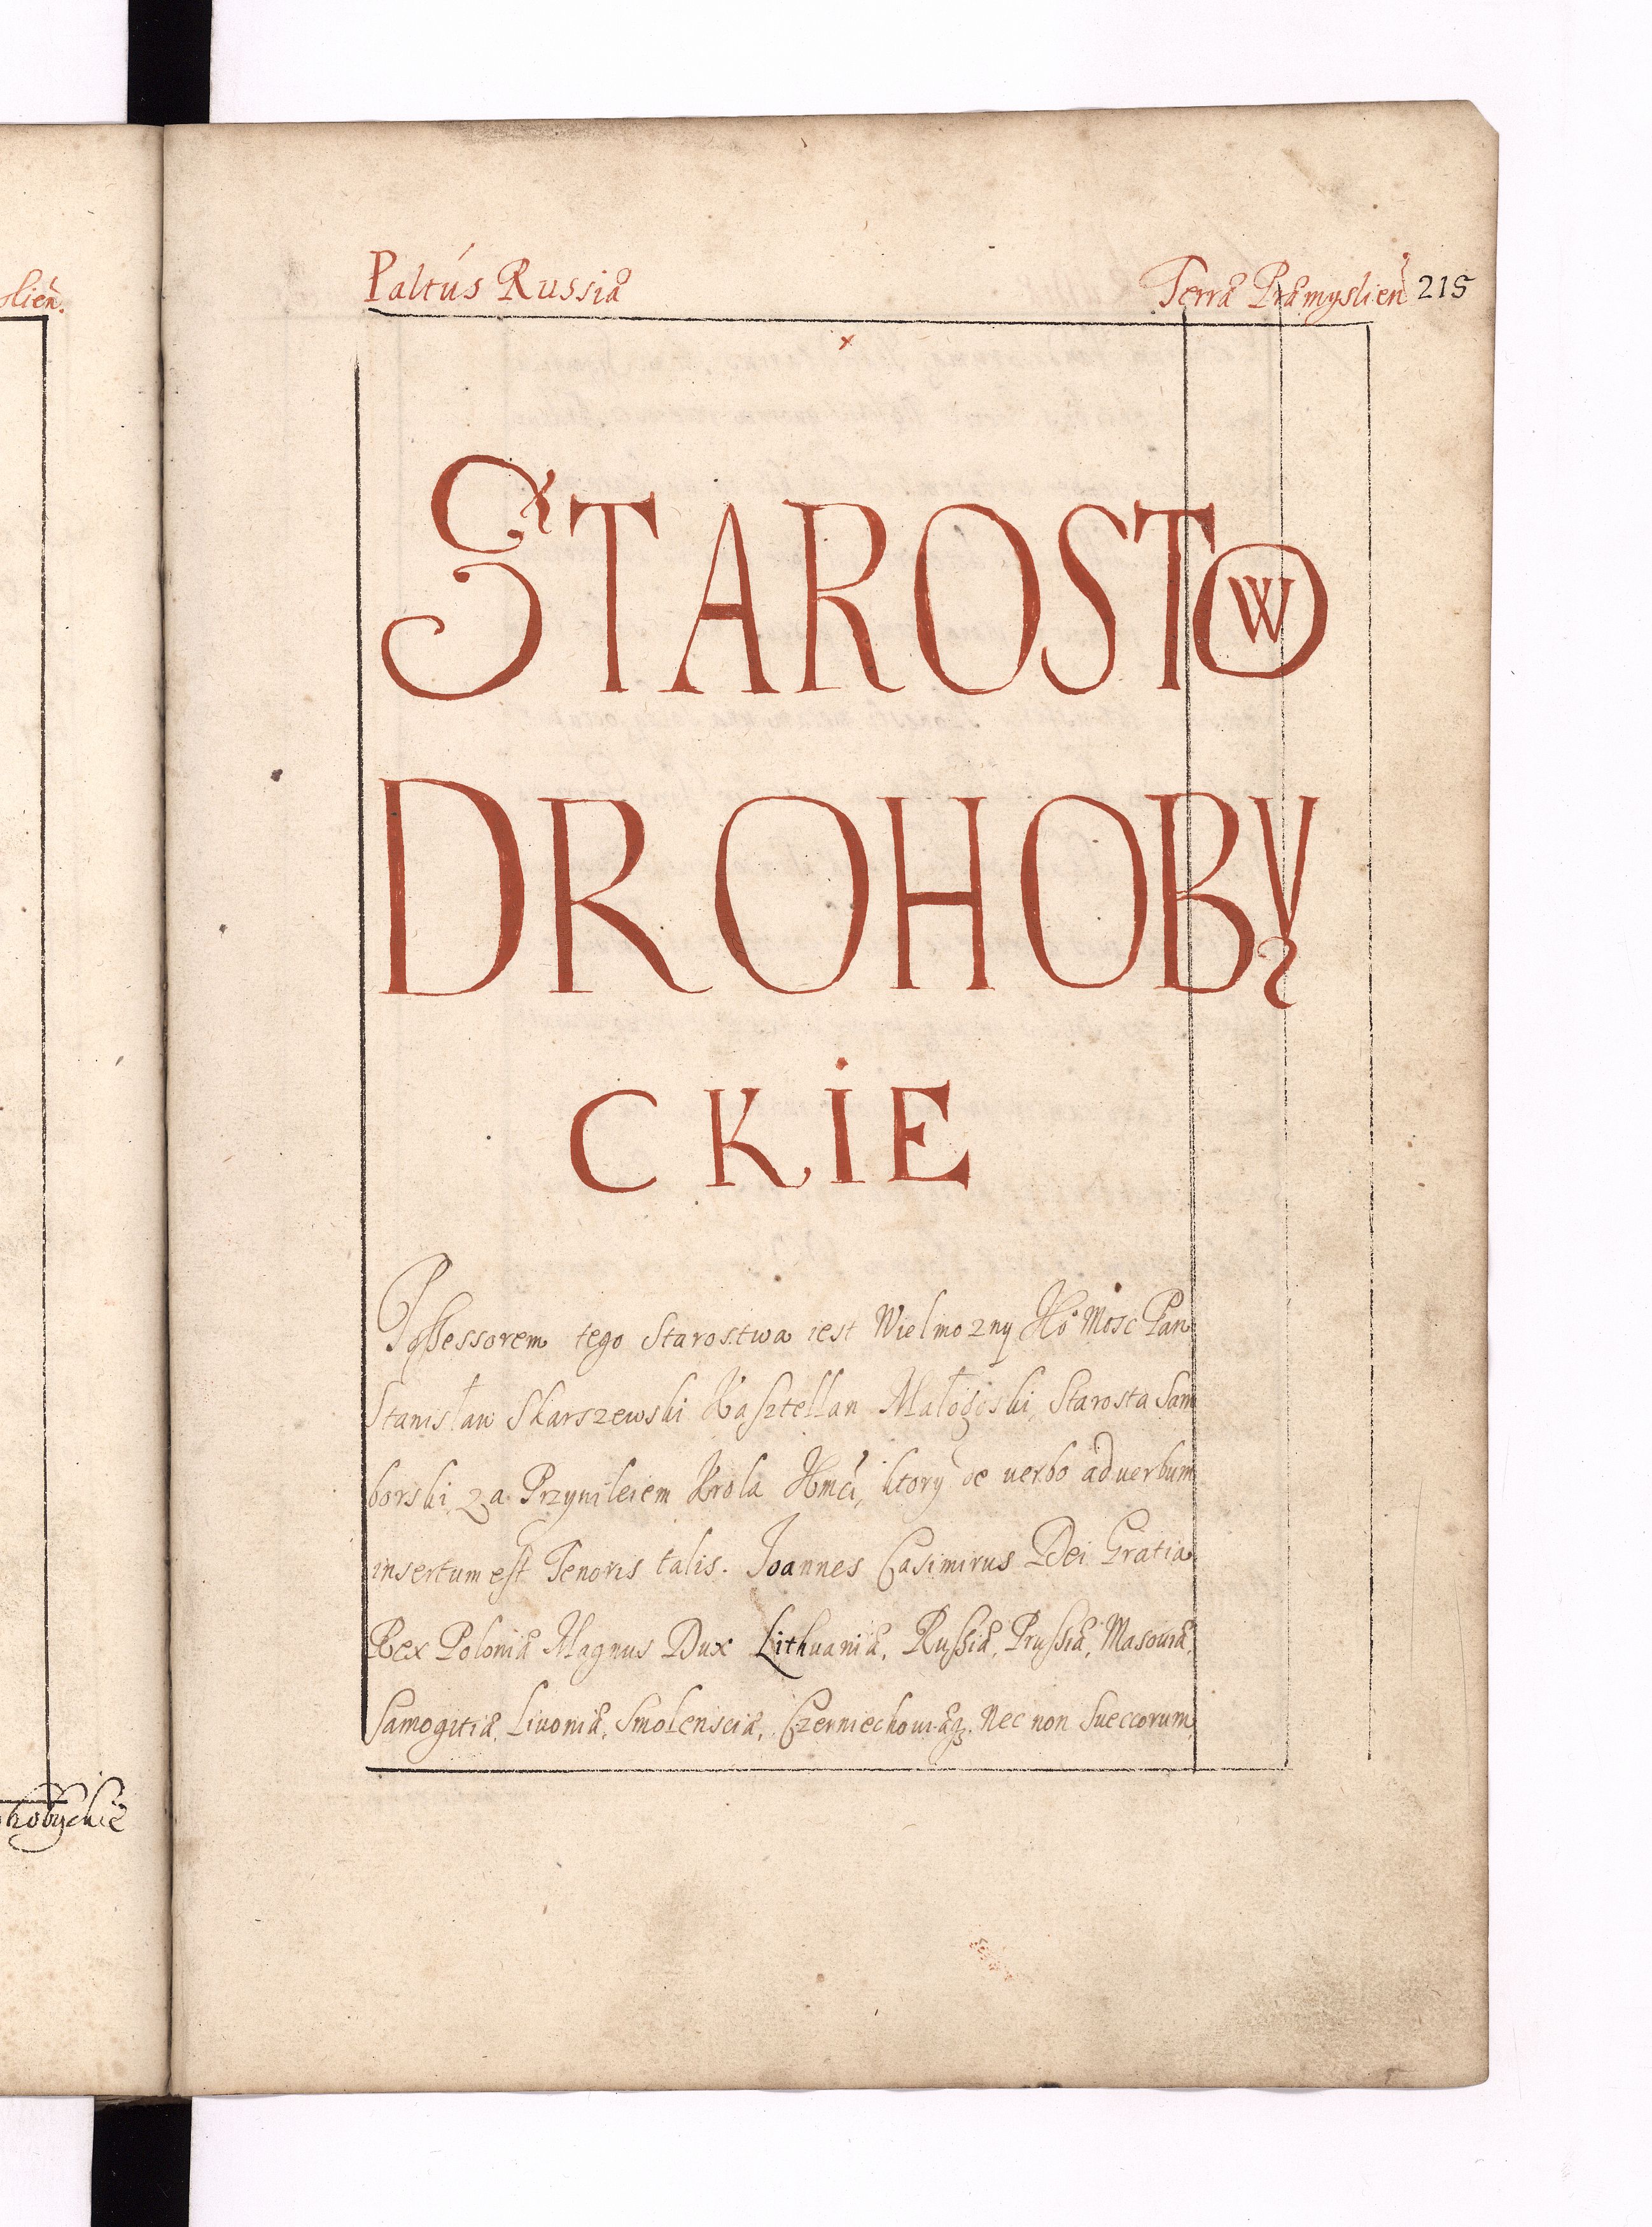 slień.
Paltús Russiæ
Terræ Præmyslień 215
STAROSTWO
DROHOBY
CKIE
Possessorem tego Starostwa iest Wielmozny Je° Mosc Pan
Stanisław Skarszewski Kasztellan Małogoski, Starosta Sam
borski, za Przywileiem Krola Jmći, ktory de verbo ad verbum
insertum est Tenoris talis. Joannes Casimirus Dei Gratia
Rex Poloniæ Magnus Dux Lithuaniæ, Rußiæ, Prußiæ, Masouiæ,
Samogitiæ, Liuoniæ, Smolensciæ, Czerniechouiæq3. Nec non Sueccorum,
hobyckie